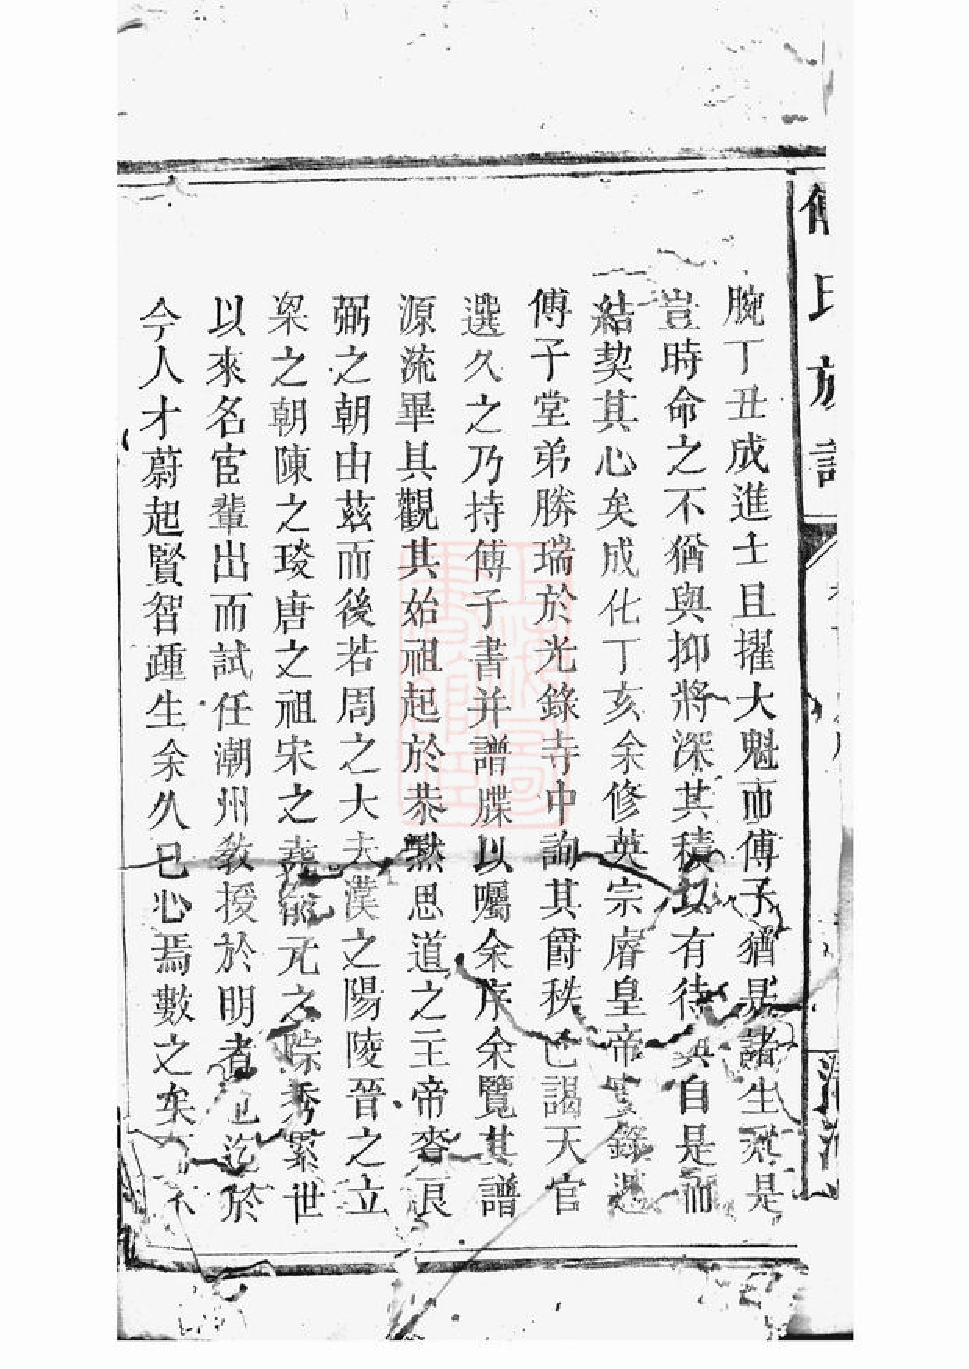 傅氏族譜
腕丁丑成進士且擢大魁而傅子猶是諸生於是
豈時命之不猶與抑將深其積以有待與自是而
結契其心矣成化丁亥余修英宗睿皇帝實錄遇
傅子堂弟勝瑞於光錄寺中詢其爵秩已謁天官
選久之乃持傅子書并譜牒以囑余序余覽其譜
源流畢具觀其始祖起於恭默思道之王帝賚良
弼之朝由茲而後若周之大夫漢之陽陵晉之立
梁之朝陳之琰唐之祖宋之堯俞元之 秀累世
以來名宦輩出而試任潮州教授於明者 迄於
今人才蔚起賢智踵生余久已心焉數之矣 不